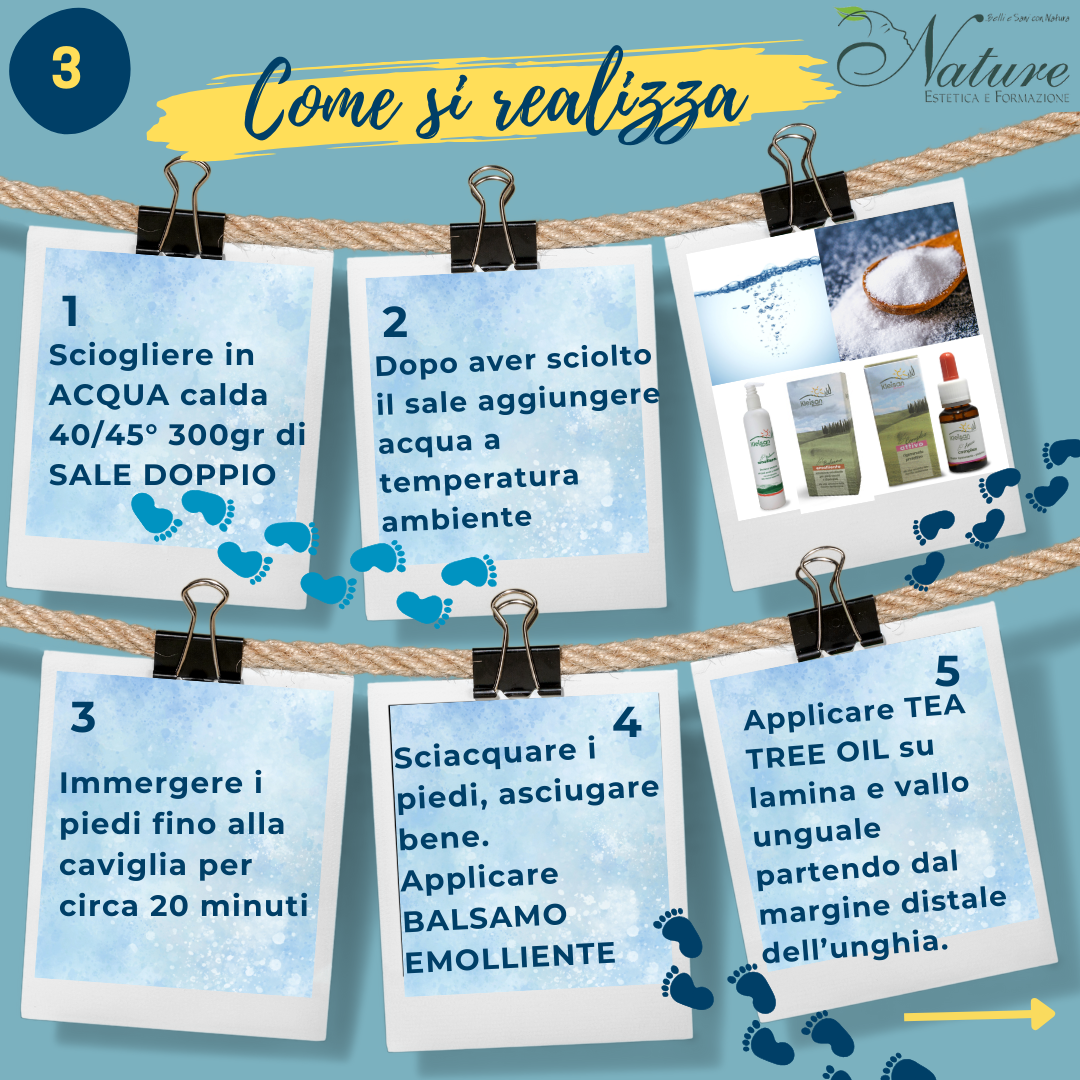 3
Come si realizza
Belli e Sani con Natura
Nature
ESTETICA E FORMAZIONE
1
Sciogliere in
ACQUA calda
40/45° 300gr di
SALE DOPPIO
2
Dopo aver sciolto
il sale aggiungere
acqua a
temperatura
ambiente
kleisan
kleisan
emolliente
kleisan
attivo
kleisan
3
Immergere i
piedi fino alla
caviglia per
circa 20 minuti
4
Sciacquare i
piedi, asciugare
bene.
Applicare
BALSAMO
EMOLLIENTE
5
Applicare TEA
TREE OIL su
lamina e vallo
unguale
partendo dal
margine distale
dell’unghia.